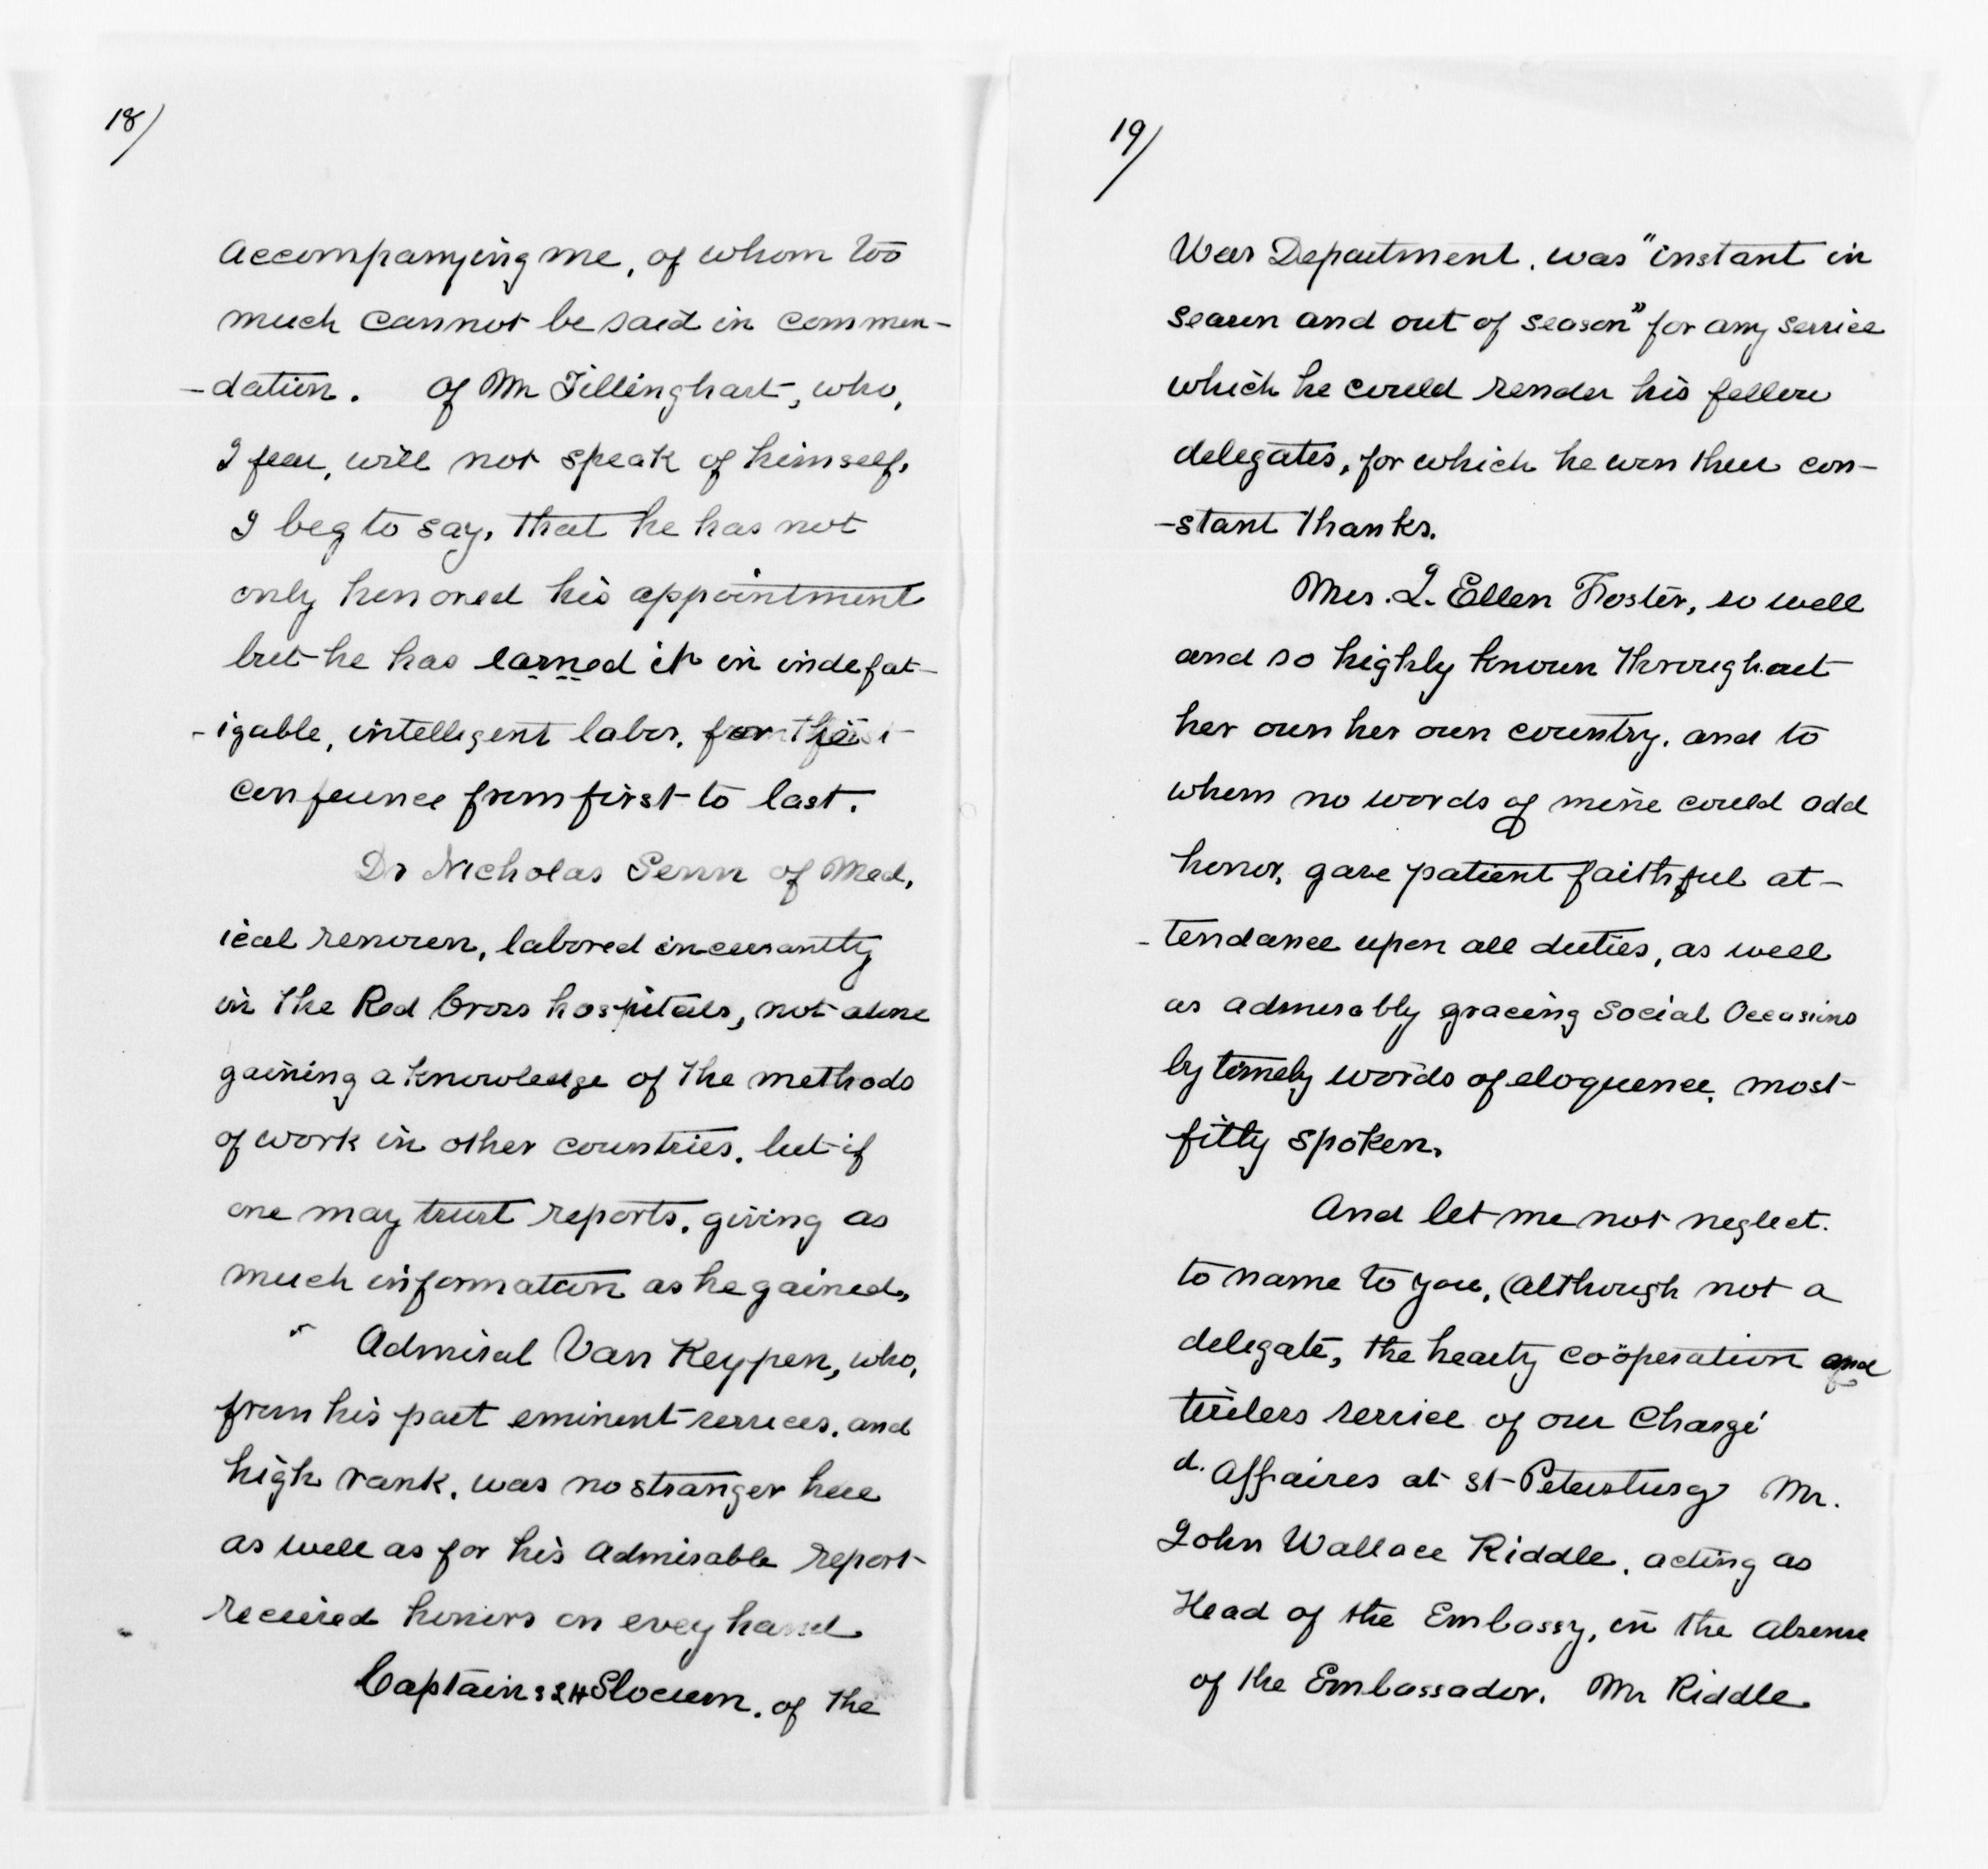 18/
accompanying me, of whom too
much cannot be said in commen-
-dation. Of Mr Tillinghast, who,
I fear, will not speak of himself,
I beg to say, that he has not
only honored his appointment
but he has earned it in indefat-
-igable, intelligent labor, for the
conference from first to last.
Dr Nicholas Senn of Med,
ical renown, labored incessantly
in the Red Cross hospitals, not alone
gaining a knowledge of the methods
of work in other countries, but if
one may trust reports, giving as
much information as he gained,
" Admiral Van Reypen, who,
from his past eminent services, and
high rank, was no stranger here
as well as for his admirable report
received honors on evey hand
Captain S L H Slocum, of the
19/
War Department, was "instant in
season and out of season" for any service
which he could render his fellow
delegates, for which he won their con-
-stant thanks.
Mrs. J. Ellen Foster, so well
and so highly known throughout
her own her own country, and to
whom no words of mine could add
honor, gave patient faithful at-
-tendance upon all duties, as well
as admirably gracing Social Occasions
by timely words of eloquence, most
fitly spoken,
And let me not neglect.
to name to you, (although not a
delegate, the hearty coöperation and
tireless service of our Chargé
d. Affaires at St Petersburg Mr.
John Wallace Riddle, acting as
Head of the Embassy, in the absence
of the Embassador. Mr Riddle